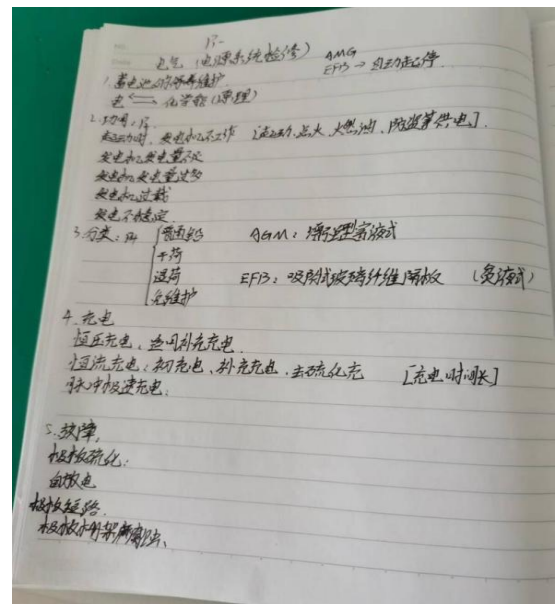 电气 (电源系统检修) AMG
EFB → 自动起停
1. 蓄电池的 维护.
电 ⇌ 化学能 (原理)
2. 功用:
起动时, 发电机不工作 [起动、点火、燃油、防盗等供电].
发电机发电量不足
发电机发电量过多
发电机过载
发电不稳定.
3. 分类:
普通铅 AGM: 式
干荷
湿荷 EFB: 吸附式玻璃纤维隔板 (式)
免维护
4. 充电
恒压充电, 补充充电.
恒流充电: 初充电、补充充电、去硫化充 [充电时间长]
脉冲极速充电.
5. 故障,
极板硫化:
自放电
极板短路.
极板